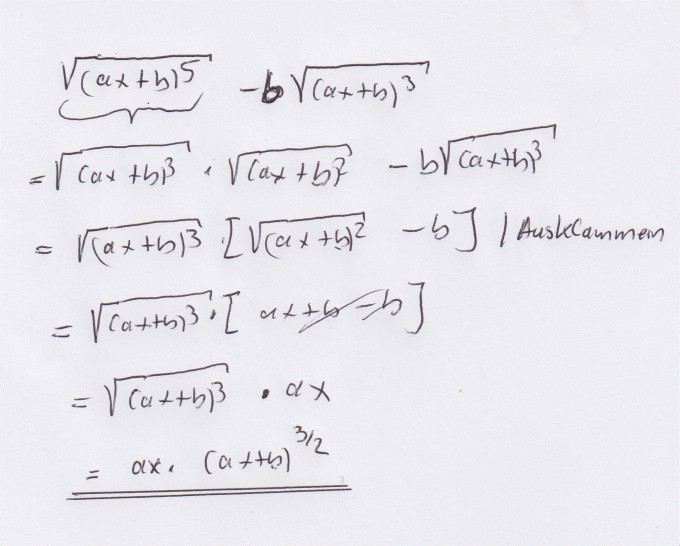 √(ax+b)⁵ -b√(ax+b)³
= √(ax+b)³ · √(ax+b)² - b√(ax+b)³
= √(ax+b)³ · [√(ax+b)² -b] | Ausklammern
= √(ax+b)³ · [ax+b-b]
= √(ax+b)³ · ax
= ax · (ax+b)^3/2